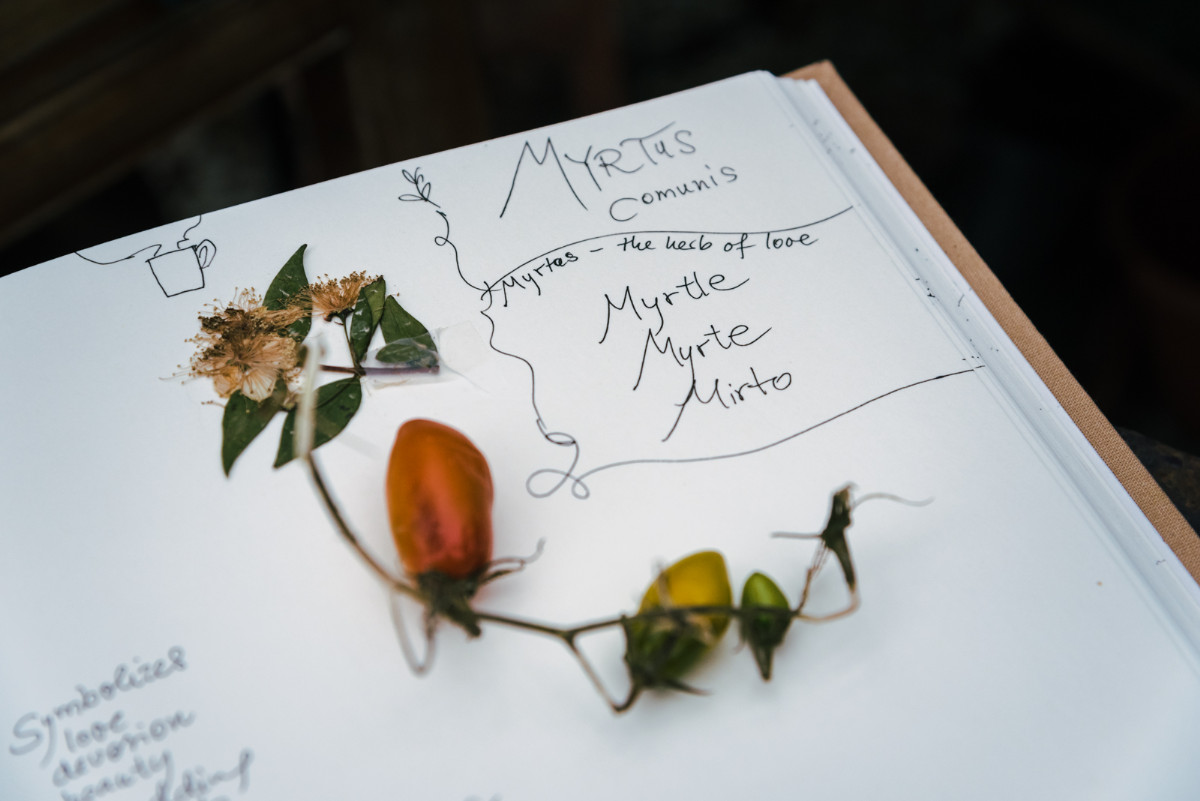 MYRTUS
Comunis
Myrtes - the herb of love
Myrtle
Myrte
Mirto
Symbolizes
love
devotion
beauty